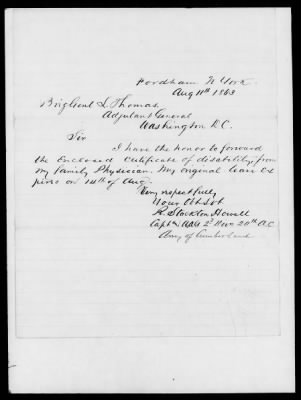 Fordham N York
Aug 11th 1863
Brig Genl L. Thomas
Adjutant General
Washington D.C.
Sir
I have the honor to forward
the Enclosed Certificate of disability, from
my family Physician. My original leave ex
pires on 14th of Aug.
Very respectfully
Your Obt Svt
R. Stockton Howell
Capt & 2d Divn 20th A.C.
Army of Cumberland